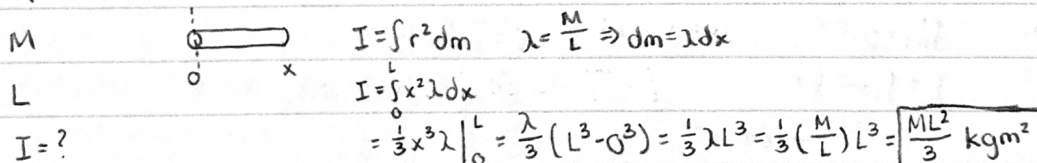 M I = ∫ r² dm λ = M/L ⇒ dm = λdx
0 x
L I = ∫₀ᴸ x² λ dx
I = ? = 1/3 x³ λ |₀ᴸ = λ/3 (L³ - 0³) = 1/3 λL³ = 1/3 (M/L) L³ = ML²/3 kgm²